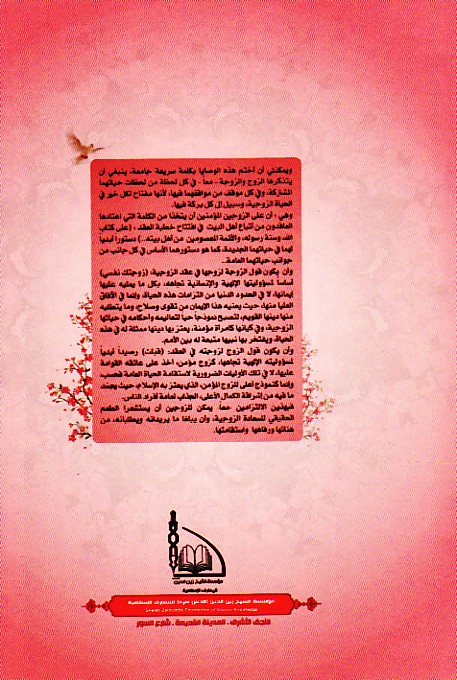 ويمكنني أن أختم هذه الوصايا بكلمة سريعة جامعة، ينبغي أن
يتذكرها الزوج والزوجة - معاً - في كل لحظة من لحظات حياتهما
المشتركة، وفي كل موقف من مواقفهما فيها، لأنها مفتاح لكل خير في
الحياة الزوجية، وسبيل إلى كل بركة فيها.
وهي: أن على الزوجين المؤمنين أن يتخذا من الكلمة التي اعتادها
العاقدون من أتباع أهل البيت في افتتاح خطبة العقد، (على كتاب
الله، وسنة رسوله، والأئمة المعصومين من أهل بيته..) دستوراً أبدياً
لهما في حياتهما الجديدة، كما هو دستورهما الأساس في كل جانب من
جوانب حياتهما العامة.
وأن يكون قول الزوجة لزوجها في عقد الزوجية، (زوجتك نفسي)
أساساً لمسؤوليتها الإلهية والإنسانية تجاهه، بكل ما يمليه عليها
إيمانها، لا في الحدود الدنيا من التزامات هذه الحياة، وإنما في الآفاق
العليا منها، حيث يعنيه هذا الإيمان من تقوى وصلاح، وما يتطلبه
منها دينها القويم، لتصبح نموذجاً حياً لتعاليمه وأحكامه في حياتها
الزوجية، وفي كيانها كامرأة مؤمنة، يعتز بها دينها ممثلة له في هذه
الحياة، ويفتخر بها نبيها متبعة له بين الأمم.
وأن يكون قول الزوج لزوجته في العقد: (قبلت) رصيداً أبدياً
لمسؤوليته الإلهية تجاهها، كزوج مؤمن، أخذ على عاتقه القوامة
عليها، لا في تلك الأوليات الضرورية لاستقامة الحياة العامة فحسب،
وإنما كنموذج أعلى للزوج المؤمن، الذي يعتز به الإسلام، حيث يجسد
ما فيه من إشراقة الكمال الأعلى، الجذاب لعامة أفراد الناس.
فبهذين الالتزامين معاً، يمكن للزوجين أن يستشعرا الطعم
الحقيقي للسعادة الزوجية، وأن يبلغا ما يريدانه ويطلبانه، من
هنائها ورفاهها واستقامتها.
مؤسسة الشيخ زين الدين
للمعارف الإسلامية
النجف الأشرف - المدينة القديمة - شارع السور